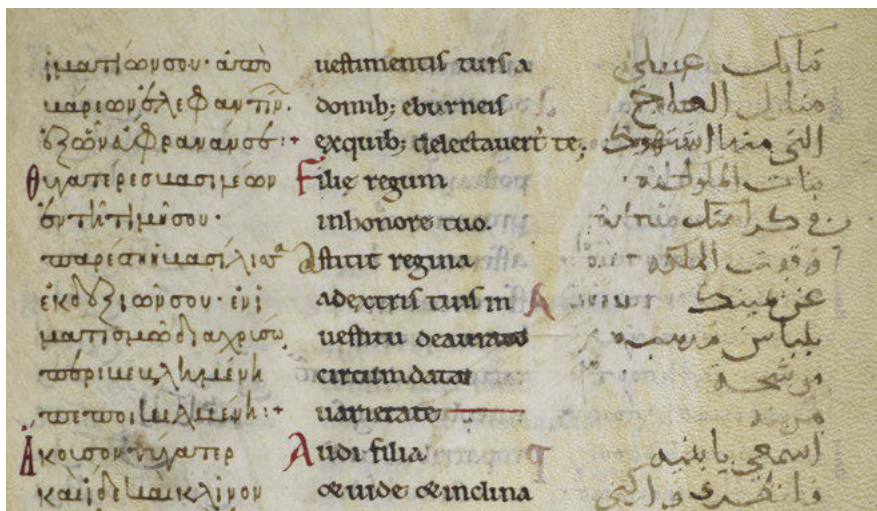 ἱματιωνσου· ἀπὸ
βάρεων ἐλεφαντίν.
ἐξῶν
θιγατέρες βασιλέων
ἐν τῆ τιμῆ σου·
παρέστη ἡ βασίλισ
ἐκ δεξιῶν σου· ἐν ἱ
ματισμῶ διαχρίσω
περιβεβλημένη
πεποικιλμένη:+
Ἄκοισον θίγατερ
καὶ ἴδε καὶ κλίνον
uestimentis tuis a
domib; eburneis
exquib; delectauer̄t te;
Filię regum
inhonore tuo.
Astitit regina
adextris tuis in
uestitu deaurato
circumdata
uarietate
Audi filia
& uide & inclina
ثيابك
منازل العاج
التي منها
بنات الملوك
في كرامتك
وقفت الملكة
عن يمينك
بلباس مذهب
موشحة
اسمعي يا بنية
وانظري واركني